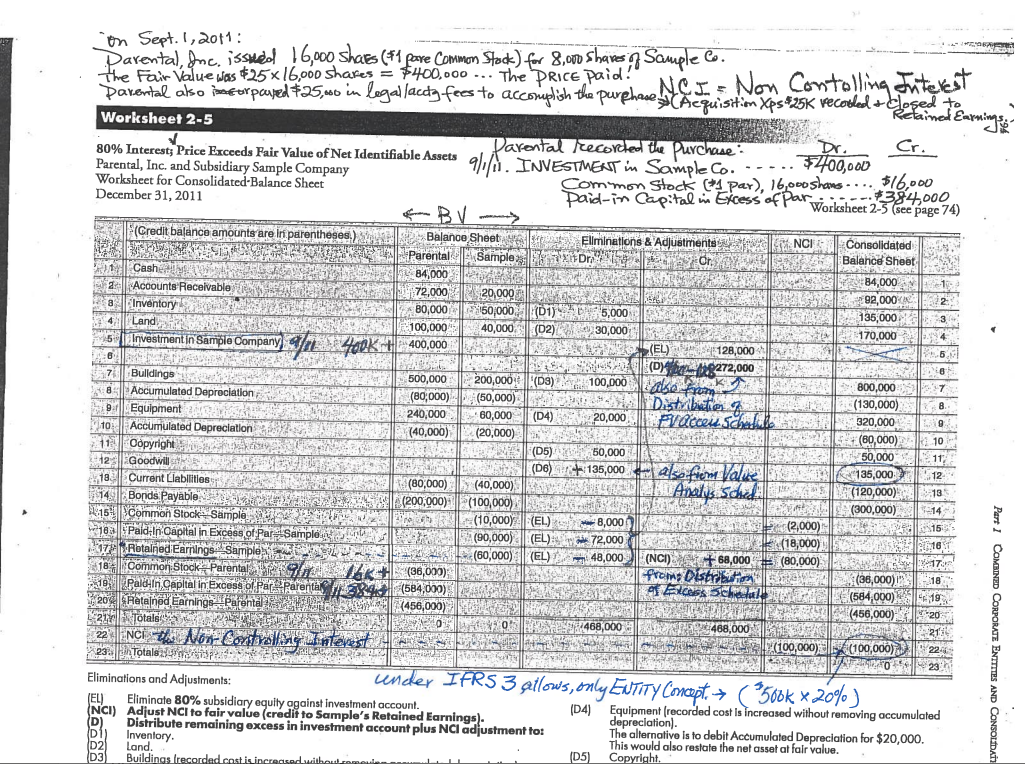 on Sept. 1, 2011:
Parental, Inc. issued 16,000 Shares ($1 pare Common Stock) for 8,000 shares of Sample Co.
The Fair Value was $25 x 16,000 Shares = $400,000 ... The PRICE paid!
Parental also paid $25,000 in legal/acctg fees to accomplish the purchase
NCI = Non Contolling Interest
(Acquisition Xps $25K recorded + closed to
Retained Earnings.
Worksheet 2-5
80% Interest; Price Exceeds Fair Value of Net Identifiable Assets
Parental, Inc. and Subsidiary Sample Company
Worksheet for Consolidated Balance Sheet
December 31, 2011
Parental recorded the Purchase: Dr. Cr.
9/1/11. INVESTMENT in Sample Co. - - - - - - $400,000
Common Stock ($1 par), 16,000 shares .... $16,000
Paid-in Capital in Excess of Par - - - - - - $384,000
Worksheet 2-5 (see page 74)
← BV →
(Credit balance amounts are in parentheses.) Balance Sheet Eliminations & Adjustments NCI Consolidated
Parental Sample Dr. Cr. Balance Sheet
1 Cash 84,000 84,000 1
2 Accounts Receivable 72,000 20,000 92,000 2
3 Inventory 80,000 50,000 (D1) 5,000 135,000 3
4 Land 100,000 40,000 (D2) 30,000 170,000 4
5 Investment in Sample Company 9/11 400K + 400,000 (EL) 128,000 5
6 (D) 272,000 6
7 Buildings 500,000 200,000 (D3) 100,000 800,000 7
8 Accumulated Depreciation (80,000) (50,000) (130,000) 8
9 Equipment 240,000 60,000 (D4) 20,000 320,000 9
10 Accumulated Depreciation (40,000) (20,000) (60,000) 10
also from
Distribution of
FV access Schedule
11 Copyright (D5) 50,000 50,000 11
12 Goodwill (D6) + 135,000 ← also from Value 135,000 12
Analys Sched.
13 Current Liabilities (80,000) (40,000) (120,000) 13
14 Bonds Payable (200,000) (100,000) (300,000) 14
15 Common Stock—Sample (10,000) (EL) — 8,000 = (2,000) 15
16 Paid-In Capital in Excess of Par—Sample (90,000) (EL) — 72,000 = (18,000) 16
17 Retained Earnings—Sample (60,000) (EL) — 48,000 (NCI) + 68,000 = (80,000) 17
18 Common Stock—Parental 9/11 16K + (36,000) (36,000) 18
19 Paid-In Capital in Excess of Par—Parental 9/11 384+ (584,000) (584,000) 19
From: Distribution
of Excess Schedule
20 Retained Earnings—Parental (456,000) (456,000) 20
21 Totals 0 0 468,000 468,000 21
22 NCI the Non-Controlling Interest (100,000) (100,000) 22
23 Totals 0 23
under IFRS 3 allows, only ENTITY Concept. → ($500K x 20%)
Eliminations and Adjustments:
(EL) Eliminate 80% subsidiary equity against investment account.
(NCI) Adjust NCI to fair value (credit to Sample's Retained Earnings).
(D) Distribute remaining excess in investment account plus NCI adjustment to:
(D1) Inventory.
(D2) Land.
(D3) Buildings (recorded cost is increased without removing
(D4) Equipment (recorded cost is increased without removing accumulated
depreciation).
The alternative is to debit Accumulated Depreciation for $20,000.
This would also restate the net asset at fair value.
(D5) Copyright.
Part 1 COMBINED CORPORATE ENTITIES AND CONSOLIDATI